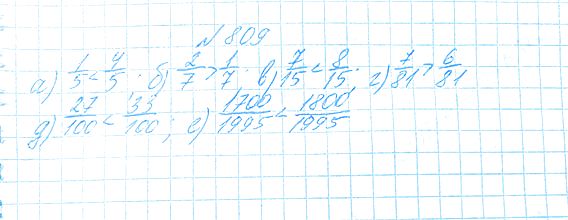 № 809
а) 1/5 < 4/5. б) 2/7 > 1/7. в) 7/15 < 8/15. г) 7/81 > 6/81
д) 27/100 < 33/100; е) 1700/1995 < 1800/1995